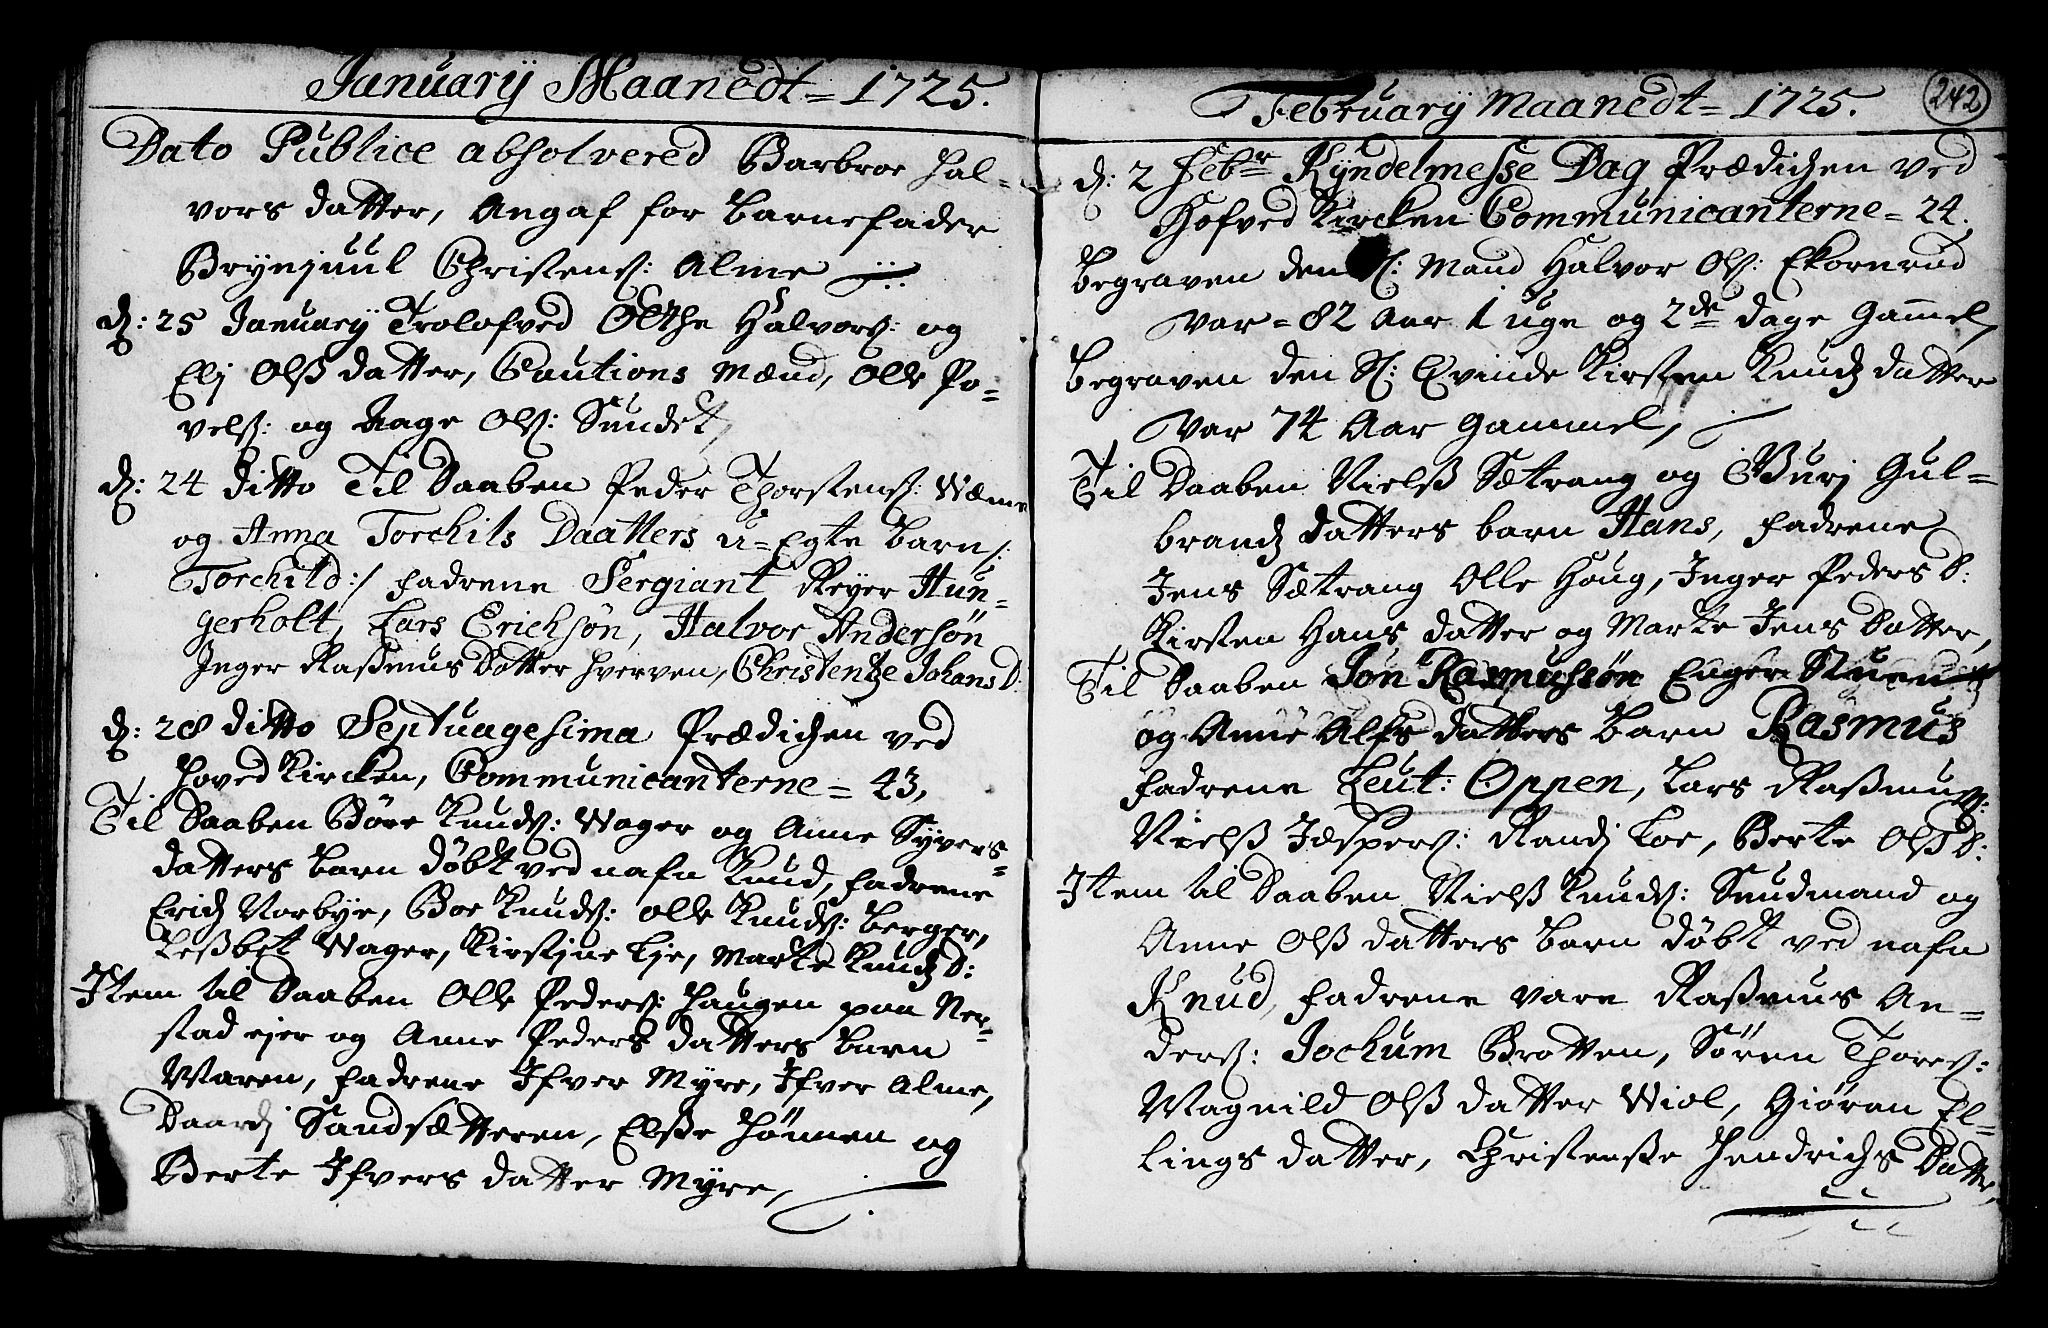 Januarij Maanedt = 1725.
Dato Publice absolvered Barbroe Hal=
vors datter, Angaf for barnefader
Brynjuul Christens: Alme
d: 25 Januarij Trolofved Olthe Halvors: og
Elj Olß datter, Cautions Mænd, Olle Po=
vels: og Aage Ols: Sundet
d: 24 ditto Til Daaben Peder Thorstens: Wæme
og Anna Torchils Daatters u=Egte barn /:
Torchild :/ fadrene Sergiant Reyer Hun=
gerholt, Lars Erichsøn, Halvor Andersøn
Inger Raßmus Datter Hverven, Christentze Johans D:
d: 28 ditto Septuagesima Prædichen ved
Hoved Kircken, Communicanterne = 43,
Til Daaben Böre Knuds: Wager og Anne Syvers=
datters barn döbt ved nafn Knud, fadrene
Erich Norbye, Boe Knuds: Olle Knuds: berger,
Leßbet Wager, Kirstjne Lje, Marte Knudz D:
Item til Daaben Olle Peders: Haugen paa Ner=
stad ejer og Anne Peders datters barn
Maren, fadrene Ifver Myre, Ifver Alme,
Daardj Sandsætteren, Elße Hönnen og
Berte Ifvers datter Myre,
Februarij Maanedt = 1725.
242
d: 2 Febr Kyndelmesse Dag Prædichen ved
Hofved Kircken Communicanterne = 24.
begraven den S: Mand Halvor Ols: Ekornrud
War = 82 Aar 1 uge og 2de dage gamel,
begraven den S: Qvinde Kirsten Knudz datter
War 74 Aar gammel,
Til Daaben Nielß Sætrang og Burj Gul=
brandz datters barn Hans, fadrene
Jens Sætrang Olle Houg, Inger Peders D:
Kirsten Hans datter og Marte Jens Datter,
Til Daaben Jon Rasmussøn Enger
og Anne Alfs datters barn Rasmus
fadrene Leut: Oppen, Lars Raßmus:
Nielß Jæspers: Randj Loe, Berte Olß D:
Item til Daaben Nielß Knuds: Sundmand og
Anne Olß datters barn döbt ved nafn
Knud, fadrene vare Raßmus An=
ders: Jochum Bratten, Sören Thores:
Magnild Olß datter Wiol, Giöran El=
lings datter, Christenße Hendrichs Datter,